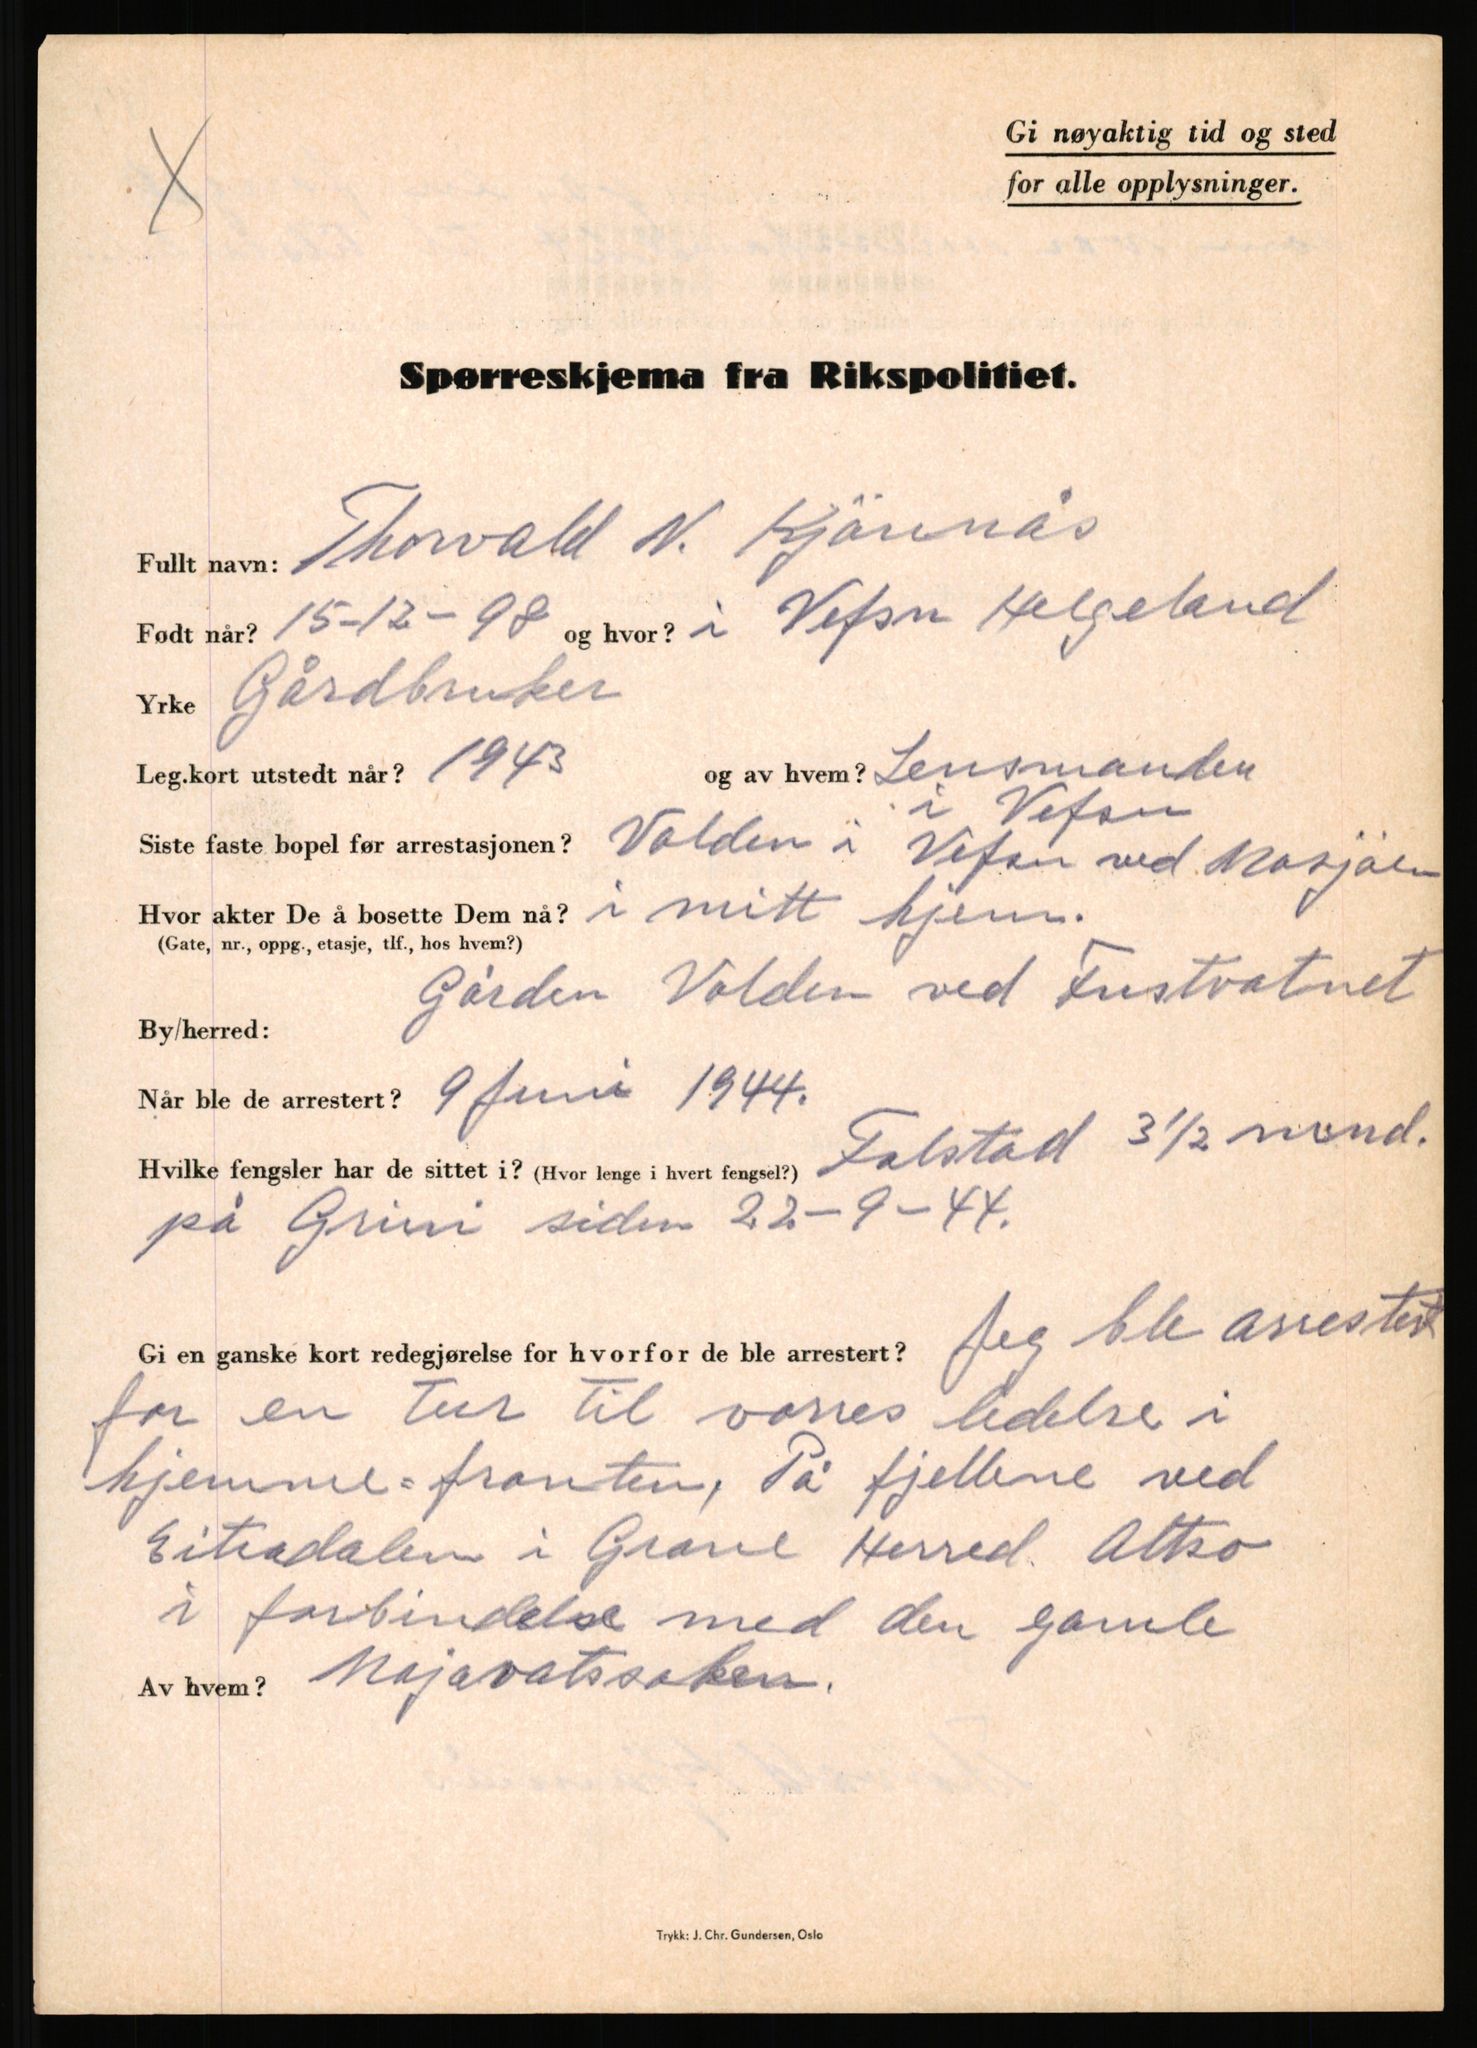 Gi nøyaktig tid og sted
for alle opplysninger.
Spørreskjema fra Rikspolitiet.
Fullt navn: Thorvald N. Kjönnås
Født når? 15-12-98 og hvor? i Vefsn Helgeland
Yrke Gårdbruker
Leg.kort utstedt når? 1943 og av hvem? Lensmanden
i Vefsn
Siste faste bopel før arrestasjonen? Volden i Vefsn ved Mosjöen
Hvor akter De å bosette Dem nå? i mitt hjem.
(Gate, nr., oppg., etasje, tlf., hos hvem?)
Gården Volden ved Fustvatnet
By/herred:
Når ble de arrestert? 9 Juni 1944.
Hvilke fengsler har de sittet i? (Hvor lenge i hvert fengsel?) Falstad 3 1/2 mond.
på Grini siden 22-9-44.
Gi en ganske kort redegjørelse for hvorfor de ble arrestert? Jeg ble arrestert
for en tur til vorres ledelse i
hjemme=fronten, På fjellene ved
Eiteradalen i Grane Herred. Altso
i forbindelse med den gamle
Av hvem? Majavatssaken.
Trykk: J. Chr. Gundersen, Oslo